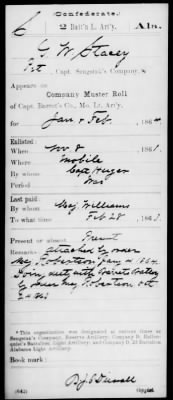 (Confederate.)
2 Batt'n L. Art'y. Ala.
G. W. Stacey
Pvt, Capt. Sengstak's Company.*
Appears on
Company Muster Roll
of Capt. Barret's Co., Mo. Lt. Art'y.
for Jan & Feb, 1864
Enlisted:
When Nov 8, 1861
Where Mobile
By whom Capt Huger
Period War
Last paid:
By whom Maj. Williams
To what time Feb 28, 1863.
Present or absent Present
Remarks: attached by order
Maj. Robertson Jany 21 1864
Doing duty with Barrets Battery
by order Maj. Robertson
*This organization was designated at various times as
Sengstak's Company, Reserve Artillery, Company D,
Battalion, Light Artillery; and Company D, 2d Battalion
Alabama Light Artillery.
Book mark:
(642) Copyist.